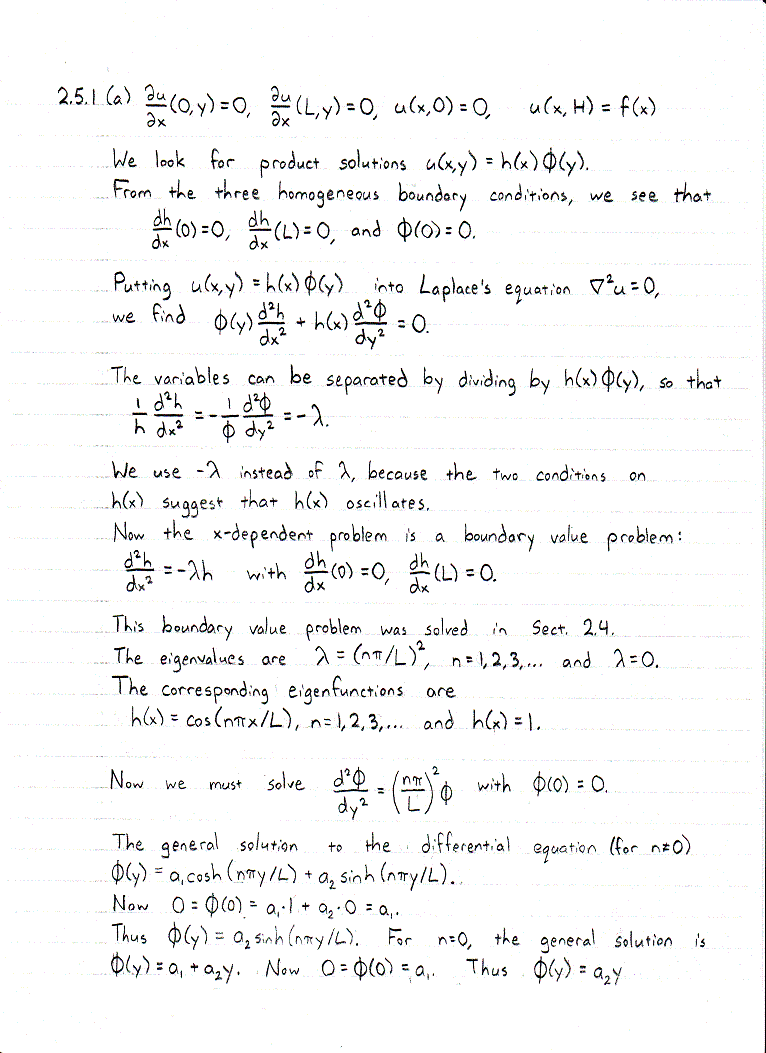 2.5.1 (a) ∂u/∂x (0,y)=0, ∂u/∂x (L,y)=0, u(x,0)=0, u(x,H)=f(x)
We look for product solutions u(x,y) = h(x)ϕ(y).
From the three homogeneous boundary conditions, we see that
dh/dx (0)=0, dh/dx (L)=0, and ϕ(0)=0.
Putting u(x,y) = h(x)ϕ(y) into Laplace's equation ∇²u=0,
we find ϕ(y) d²h/dx² + h(x) d²ϕ/dy² = 0.
The variables can be separated by dividing by h(x)ϕ(y), so that
1/h d²h/dx² = - 1/ϕ d²ϕ/dy² = -λ.
We use -λ instead of λ, because the two conditions on
h(x) suggest that h(x) oscillates.
Now the x-dependent problem is a boundary value problem:
d²h/dx² = -λh with dh/dx (0)=0, dh/dx (L)=0.
This boundary value problem was solved in Sect. 2.4.
The eigenvalues are λ = (nπ/L)², n=1,2,3,... and λ=0.
The corresponding eigenfunctions are
h(x) = cos(nπx/L), n=1,2,3,... and h(x)=1.
Now we must solve d²ϕ/dy² = (nπ/L)² ϕ with ϕ(0)=0.
The general solution to the differential equation (for n≠0)
ϕ(y) = a₁cosh(nπy/L) + a₂sinh(nπy/L).
Now 0=ϕ(0) = a₁·1 + a₂·0 = a₁.
Thus ϕ(y) = a₂sinh(nπy/L). For n=0, the general solution is
ϕ(y) = a₁ + a₂y. Now 0=ϕ(0) = a₁. Thus ϕ(y) = a₂y